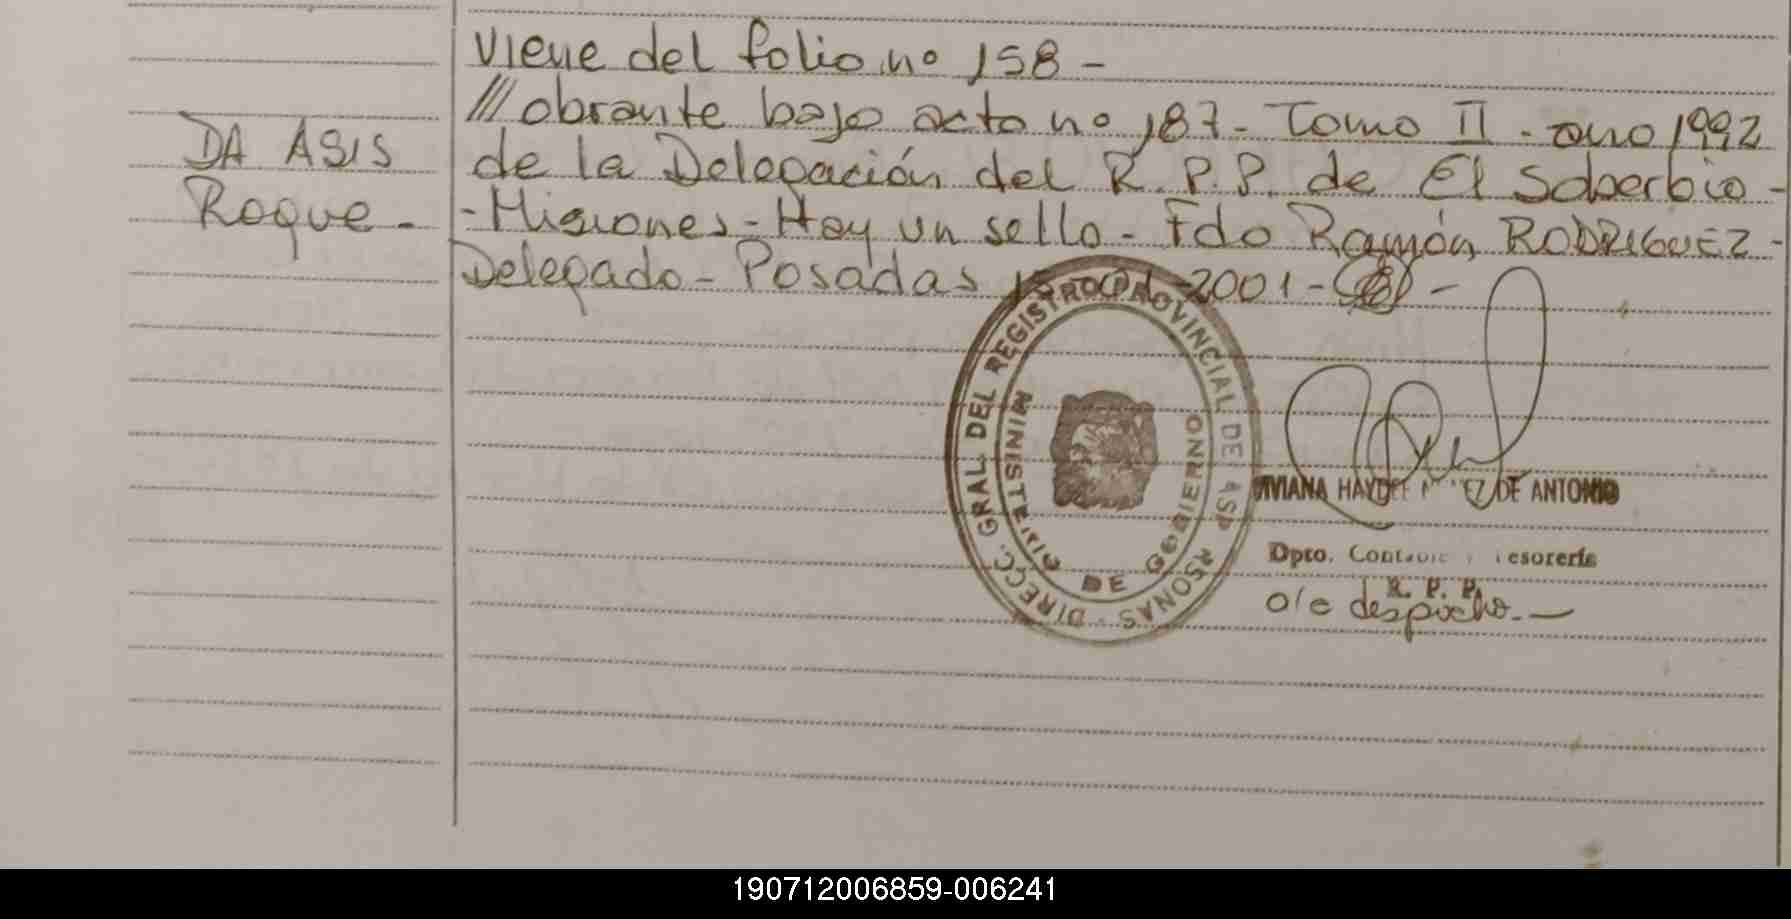 Viene del folio nº 158 -
/// obrante bajo acta nº 187 - Tomo II - año 1992
DA ASIS
de la Delegación del R. P. P. de El Soberbio -
Roque -
- Misiones - Hay un sello - Fdo Ramón RODRIGUEZ -
Delegado - Posadas 2001 -
DIRECC. GRAL DEL REGISTRO PROVINCIAL DE
MINISTERIO DE GOBIERNO
VIVIANA HAYDEE DE ANTONIO
Dpto.
R. P. P.
a/c despacho. -
190712006859-006241